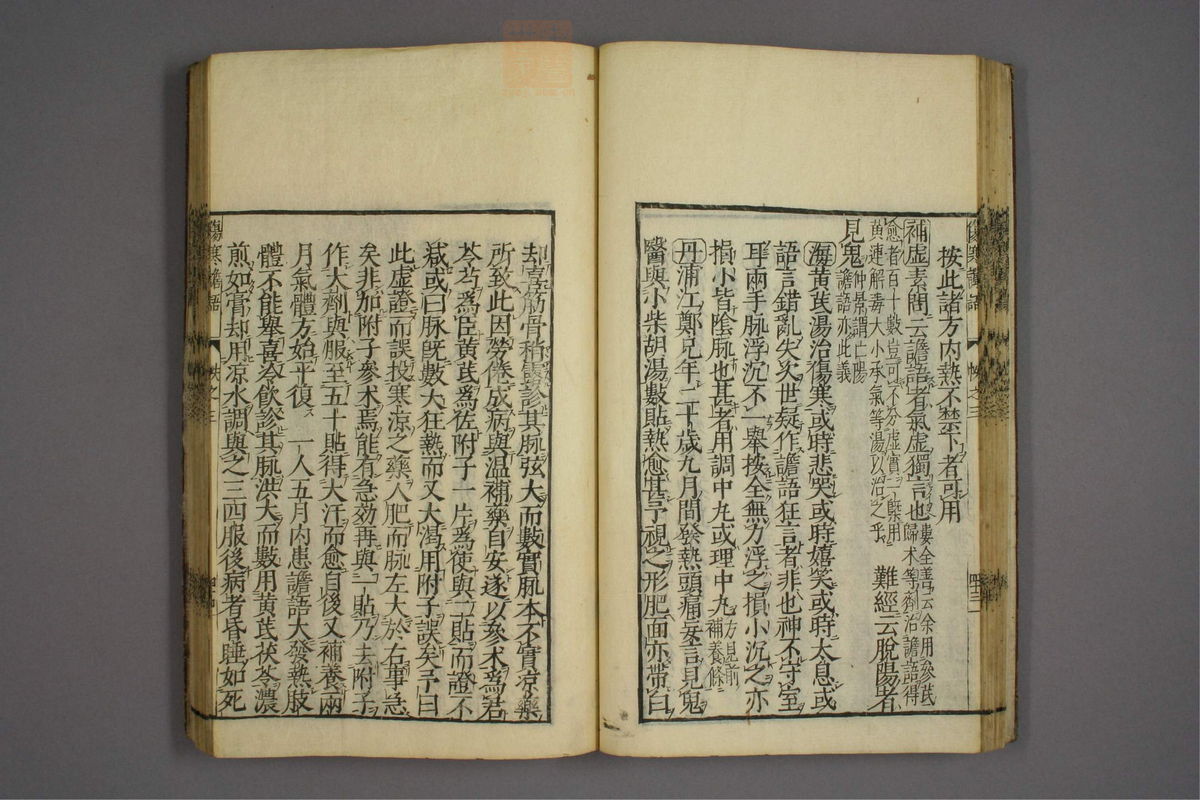 按此諸方內熱不禁下者可用
補虛素問云譫語者氣虛獨言也婁全善云余用參芪
歸术等劑治譫語得
愈者百十數豈可不分虛實一槩用
黃連解毒大小承氣等湯以治之乎 難經云脫陽者
見鬼仲景謂亡陽
譫語亦此義
海黃芪湯治傷寒或時悲哭或時嬉笑或時太息或
語言錯亂失次世疑作譫語狂言者非也神不守室
耳兩手脉浮沉不一舉按全無力浮之損小沉之亦
損小皆陰脉也甚者用調中丸或理中丸方見前
補養條
丹浦江鄭兄年二十歲九月間發熱頭痛妄言見鬼
醫與小柴胡湯數貼熱愈甚予視之形肥面亦帶白
却喜筋骨稍露診其脉弦大而數實脉本不實凉藥
所致此因勞倦成病與温補藥自安遂以參术為君
苓芍為臣黃芪為佐附子一片為使與二貼而證不
減或曰脉旣數大狂熱而又大渴用附子誤矣予曰
此虛證而誤投寒凉之藥人肥而脉左大於右事急
矣非加附子參术焉能有急効再與一貼乃去附子
作大劑與服至五十貼得大汗而愈自後又補養兩
月氣體方始平復 一人五月內患譫語大發熱肢
體不能舉喜冷飲診其脉洪大而數用黃芪茯苓濃
煎如膏却用凉水調與之三四服後病者昏睡如死
傷寒譫語
帙之三